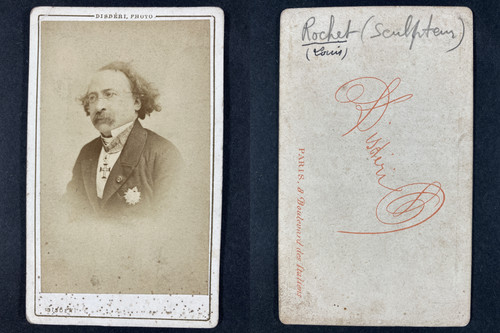 DISDÉRI, PHOTO
DISDÉRI
Rochet (Sculpteur)
(Louis)
Disdéri
PARIS, 8 Boulevard des Italiens